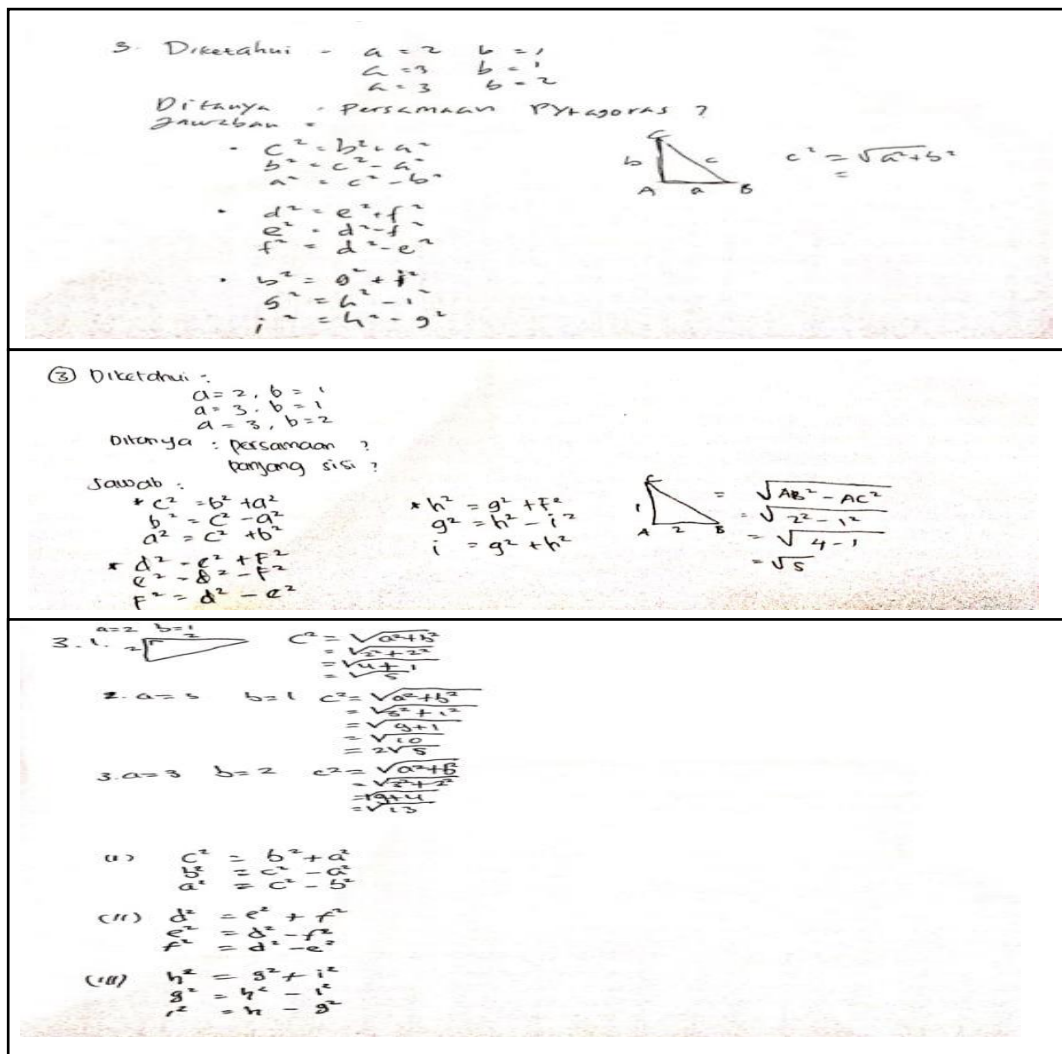 3. Diketahui - a = 2 b = 1
a = 3 b = 1
a = 3 b = 2
Ditanya : Persamaan Pytagoras ?
Jawaban =
• c² = b² + a²
b² = c² - a²
a² = c² - b²
b c
A a B
c² = √a²+b²
=
• d² = e² + f²
e² = d² - f²
f² = d² - e²
• h² = g² + i²
g² = h² - i²
i² = h² - g²
③ Diketahui :
a = 2, b = 1
a = 3, b = 1
a = 3, b = 2
Ditanya : persamaan ?
panjang sisi ?
Jawab :
* c² = b² + a²
b² = c² - a²
a² = c² + b²
* d² = e² + F²
e² = d² - F²
F² = d² - e²
* h² = g² + F²
g² = h² - i²
i = g² + h²
C
1
A 2 B
= √AB² - AC²
= √2² - 1²
= √4 - 1
= √5
3. 1. a=2 b=1
2
2
c² = √a²+b²
= √2² + 2²
= √4 + 1
= √5
2. a = 3 b = 1 c² = √a²+b²
= √3² + 1²
= √9+1
= √10
= 2√5
3. a = 3 b = 2 c² = √a²+b²
= √3² + 2²
= √9+4
= √13
(i) c² = b² + a²
b² = c² - a²
a² = c² - b²
(ii) d² = e² + f²
e² = d² - f²
f² = d² - e²
(iii) h² = g² + i²
g² = h² - i²
i² = h - g²